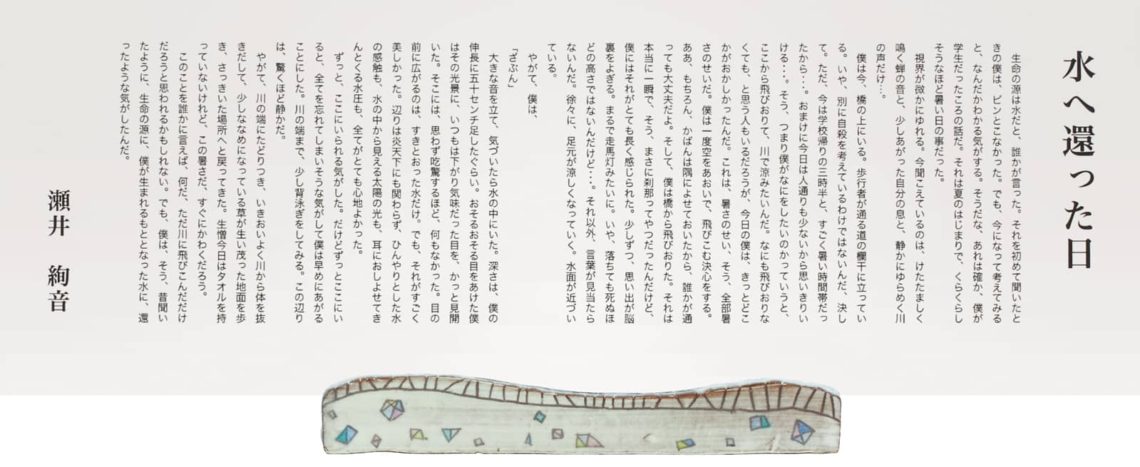 水へ還った日
生命の源は水だと、誰かが言った。それを初めて聞いたと
きの僕は、ピンとこなかった。でも、今になって考えてみる
と、なんだかわかる気がする。そうだなあ、あれは確か、僕が
学生だったころの話だ。それは夏のはじまりで、くらくらし
そうなほど暑い日の事だった。
視界が微かにゆれる。今聞こえているのは、けたたましく
鳴く蝉の音と、少しあがった自分の息と、静かにゆらめく川
の声だけ…。
僕は今、橋の上にいる。歩行者が通る道の欄干に立ってい
る。いや、別に自殺を考えているわけではないんだ、決し
て。ただ、今は学校帰りの三時半と、すごく暑い時間帯だっ
たから…。おまけに今日は人通りも少ないから思いきりい
ける…。そう、つまり僕がなにをしたいのかっていうと、
ここから飛びおりて、川で涼みたいんだ。なにも飛びおりな
くても、と思う人もいるだろうが、今日の僕は、きっとどこ
かがおかしかったんだ。これは、暑さのせい、そう、全部暑
さのせいだ。僕は一度空をあおいで、飛びこむ決心をする。
ああ、もちろん、かばんは隅によせておいたから、誰かが通
っても大丈夫だよ。そして、僕は橋から飛びおりた。それは
本当に一瞬で、そう、まさに刹那ってやつだったんだけど、
僕にはそれがとても長く感じられた。少しずつ、思い出が脳
裏をよぎる。まるで走馬灯みたいに。いや、落ちても死ぬほ
どの高さではないんだけど…。それ以外、言葉が見当たら
ないんだ。徐々に、足元が涼しくなっていく。水面が近づい
ている。
やがて、僕は、
「ざぶん」
大きな音を立て、気づいたら水の中にいた。深さは、僕の
伸長に五十センチ足したぐらい。おそるおそる目をあけた僕
はその光景に、いつもは下がり気味だった目を、かっと見開
いた。そこには、思わず吃驚するほど、何もなかった。目の
前に広がるのは、すきとおった水だけ。でも、それがすごく
美しかった。辺りは炎天下にも関わらず、ひんやりとした水
の感触も、水の中から見える太陽の光も、耳におしよせてき
んとくる水圧も、全てがとても心地よかった。
ずっと、ここにいられる気がした。だけどずっとここにい
ると、全てを忘れてしまいそうな気がして僕は早めにあがる
ことにした。川の端まで、少し背泳ぎをしてみる。この辺り
は、驚くほど静かだ。
やがて、川の端にたどりつき、いきおいよく川から体を抜
きだして、少しななめになっている草が生い茂った地面を歩
き、さっきいた場所へと戻ってきた。生憎今日はタオルを持
っていないけれど、この暑さだ、すぐにかわくだろう。
このことを誰かに言えば、何だ、ただ川に飛びこんだだけ
だろうと思われるかもしれない。でも、僕は、そう、昔聞い
たように、生命の源に、僕が生まれるもととなった水に、還
ったような気がしたんだ。
瀬井 絢音